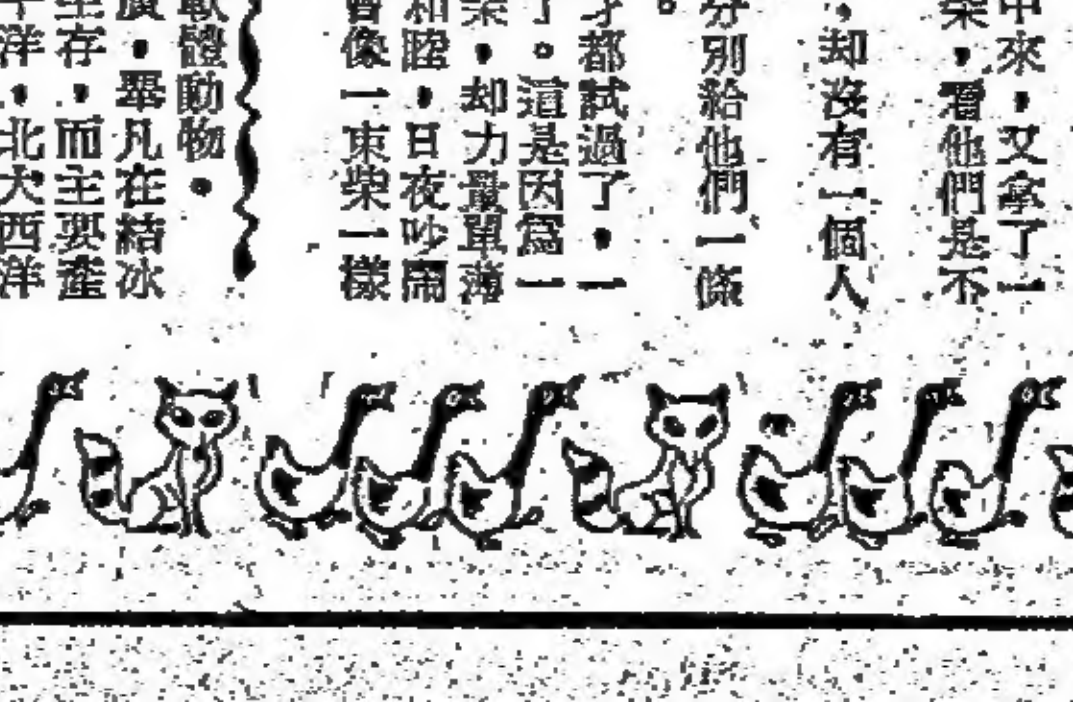 中來，又拿了一
柴，看他們是不
，却沒有一個人
分別給他們一條
。
才都試過了，一
了。這是因爲一
柴，却力最單薄
和睦，日夜吵鬧
會像一束柴一樣
軟體動物。
廣，畢凡在結冰
生存，而主要產
洋，北大西洋